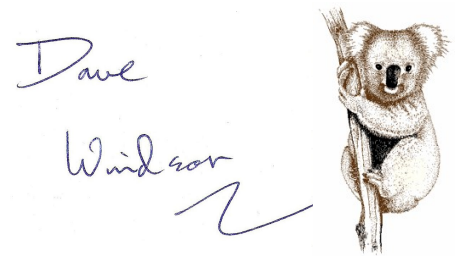 Dave
Windsor